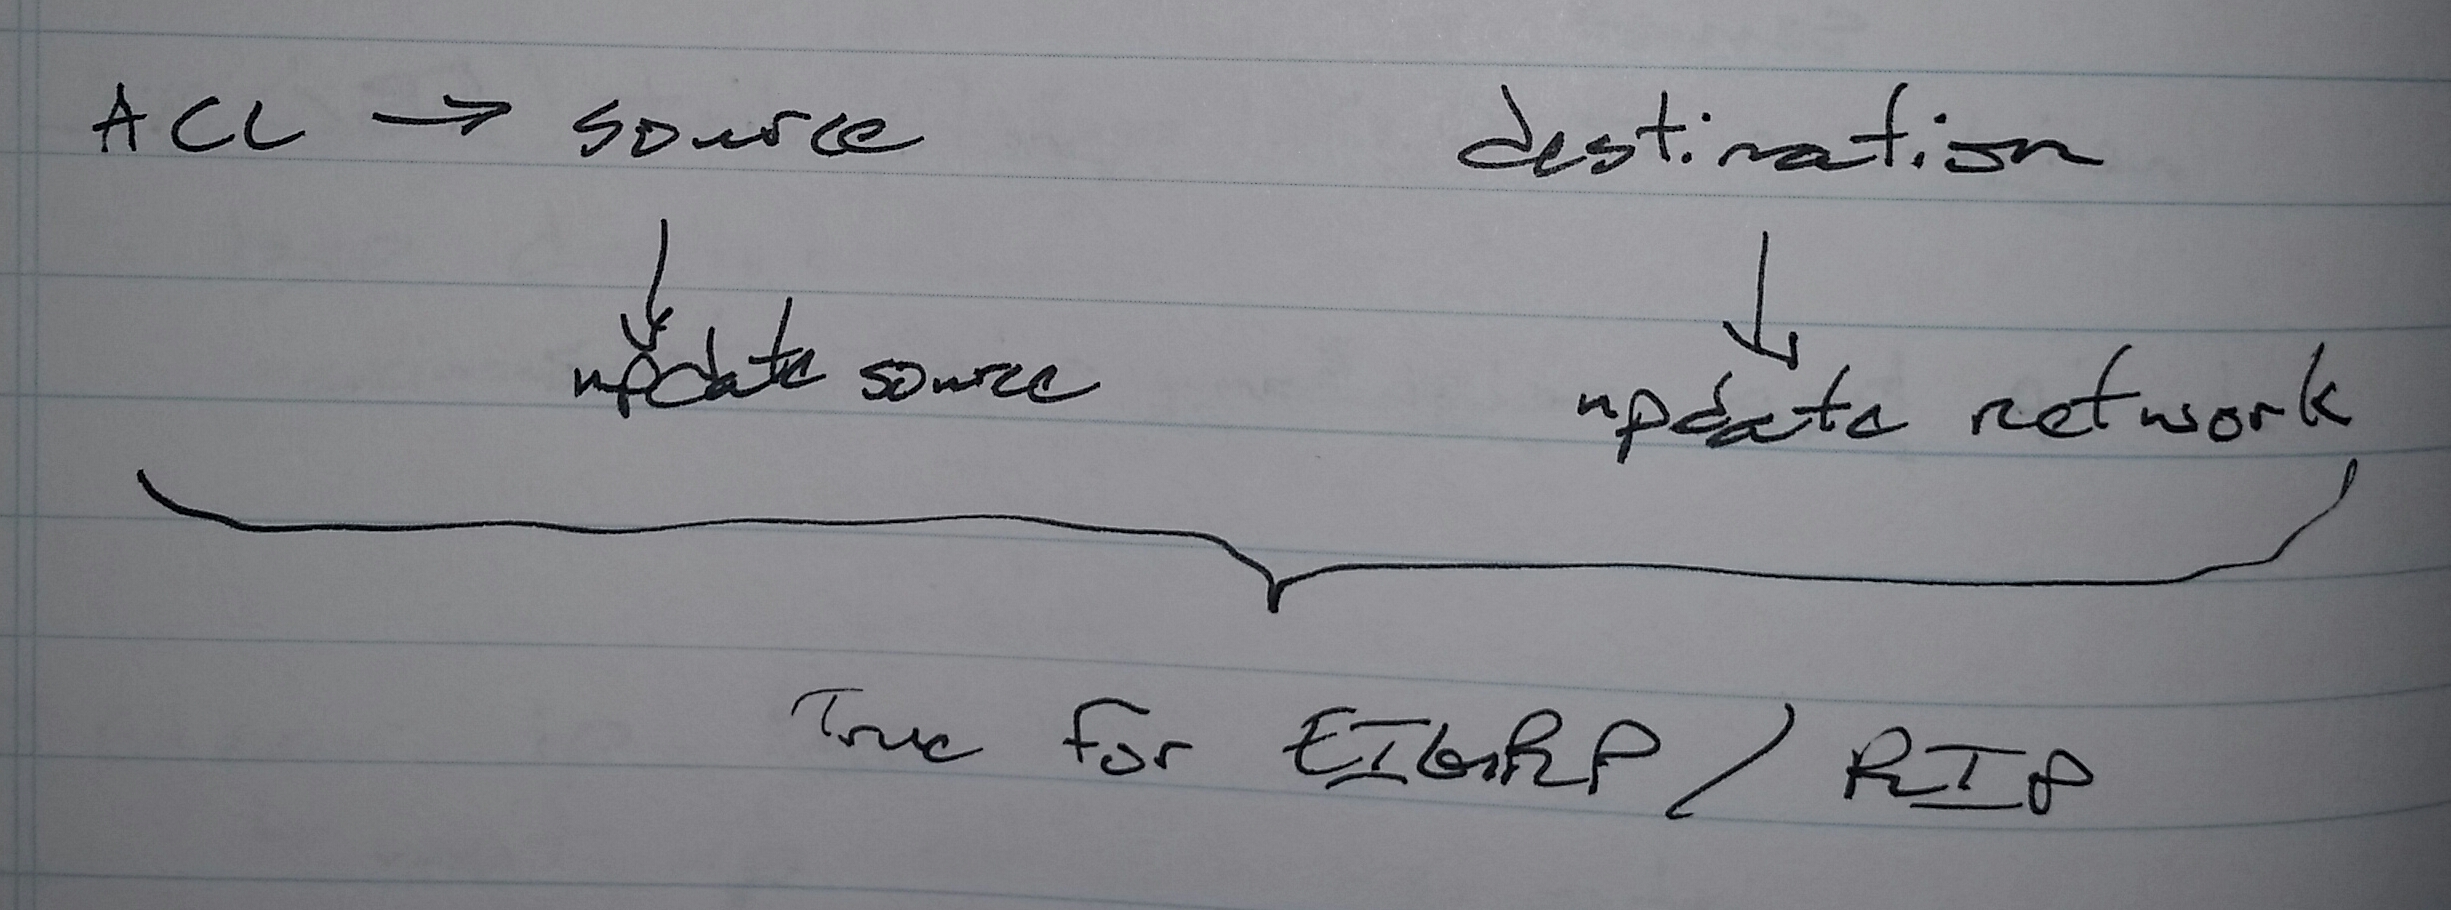 ACL → source destination
update source update network
True for EIGRP / RIP